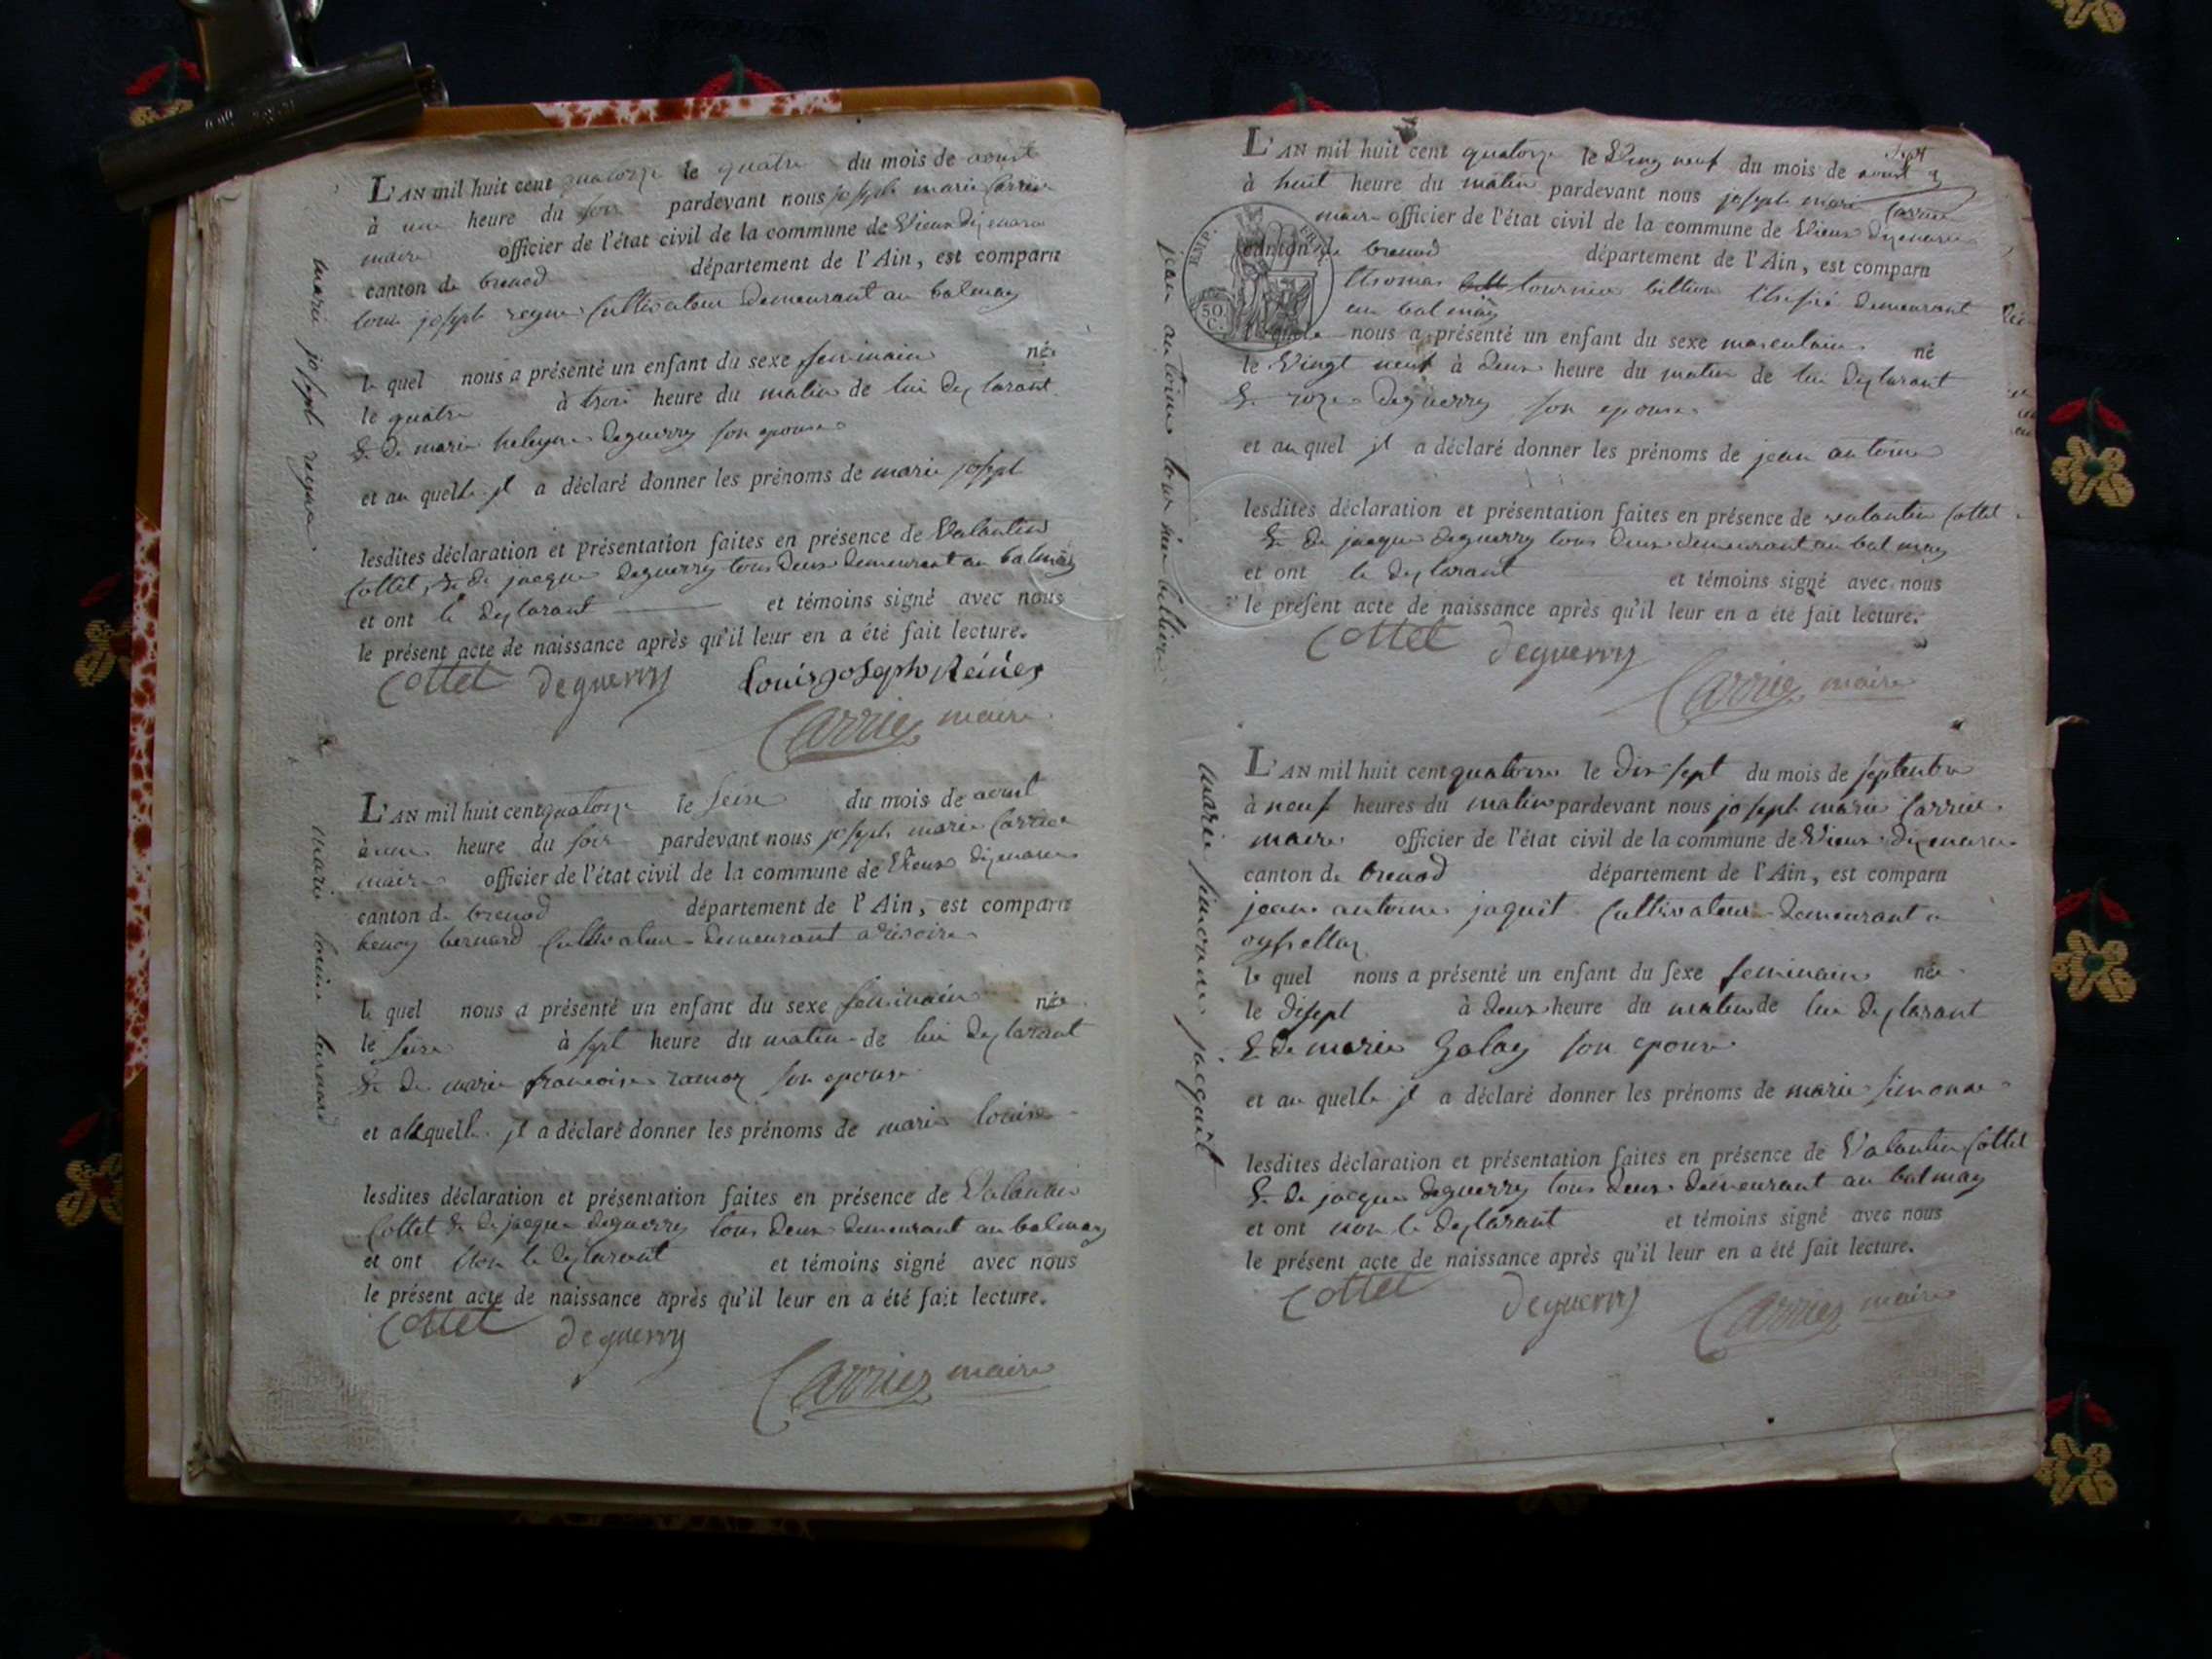 L'AN mil huit cent quatorze le quatre du mois de aoust
à une heure du soir pardevant nous joseph marie Carrier
maire officier de l'état civil de la commune de Vieux dizenave
canton de brenod département de l'Ain, est comparu
louis joseph reyne Cultivateur demeurant au balmay
le quel nous a présenté un enfant du sexe feminain née
le quatre à trois heure du matin de lui declarant
& de marie deguerry son epouse
et au quelle il a déclaré donner les prénoms de marie joseph
lesdites déclaration et présentation faites en présence de Valantin
Cottet, & de jacque deguerry tous deux demeurant au balmay
et ont le declarant et témoins signé avec nous
le présent acte de naissance après qu'il leur en a été fait lecture.
Cottet deguerry Louis joseph Reine
Carrier maire
marie joseph reyne
L'AN mil huit cent quatorze le seise du mois de aoust
à une heure du soir pardevant nous joseph marie Carrier
maire officier de l'état civil de la commune de Vieux dizenave
canton de brenod département de l'Ain, est comparu
benoy bernard Cultivateur demeurant
le quel nous a présenté un enfant du sexe feminain née
le seise à sept heure du matin de lui declarant
& de marie francoise ramoz son epouse
et a quelle il a déclaré donner les prénoms de marie louise
lesdites déclaration et présentation faites en présence de Valantin
Cottet & de jacque deguerry tous deux demeurant au balmay
et ont non le declarant et témoins signé avec nous
le présent acte de naissance après qu'il leur en a été fait lecture.
Cottet deguerry
Carrier maire
marie louise bernard
L'AN mil huit cent quatorze le Ving neuf du mois de aoust
à huit heure du matin pardevant nous joseph marie Carrier
maire officier de l'état civil de la commune de Vieux dizenave
canton de brenod département de l'Ain, est comparu
thomas tournier billion demeurant
au balmay
le quel nous a présenté un enfant du sexe masculain né
le Vingt neuf à deux heure du matin de lui declarant
& roze deguerry son epouse
et au quel il a déclaré donner les prénoms de jean antoine
lesdites déclaration et présentation faites en présence de valantin Cottet
& de jacque deguerry tous deux demeurant au balmay
et ont le declarant et témoins signé avec nous
le présent acte de naissance après qu'il leur en a été fait lecture.
Cottet deguerry
Carrier maire
jean antoine tournier billion
50 C.
L'AN mil huit cent quatorse le dix sept du mois de septembre
à neuf heures du matin pardevant nous joseph marie Carrier
maire officier de l'état civil de la commune de Vieux dizenave
canton de brenod département de l'Ain, est comparu
jean antoine jaquit Cultivateur demeurant a
oyssellaz
le quel nous a présenté un enfant du sexe feminain née
le disept à deux heure du matin de lui declarant
& de marie Golay son epouse
et au quelle il a déclaré donner les prénoms de marie simonne
lesdites déclaration et présentation faites en présence de Valantin Cottet
& de jacque deguerry tous deux demeurant au balmay
et ont non le declarant et témoins signé avec nous
le présent acte de naissance après qu'il leur en a été fait lecture.
Cottet deguerry Carrier maire
marie simonne jacquit